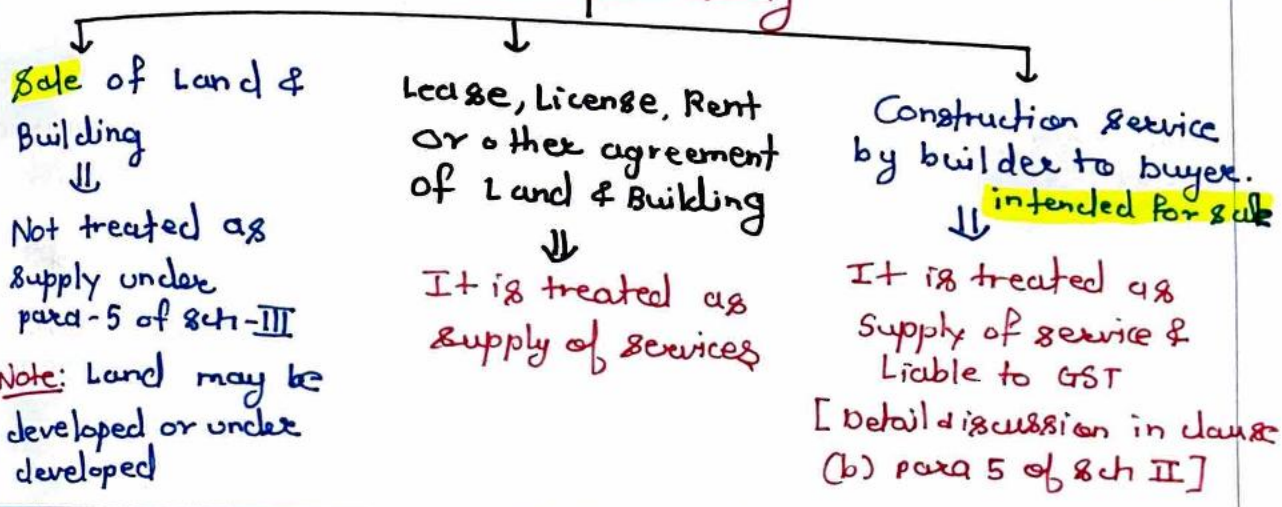 Sale of Land &
Building
⇓
Not treated as
supply under
para-5 of sch-III
Note: Land may be
developed or under
developed
Lease, License, Rent
or other agreement
of Land & Building
⇓
It is treated as
supply of services
Construction service
by builder to buyer.
intended for sale
⇓
It is treated as
Supply of service &
Liable to GST
[Detail discussion in clause
(b) para 5 of sch II]